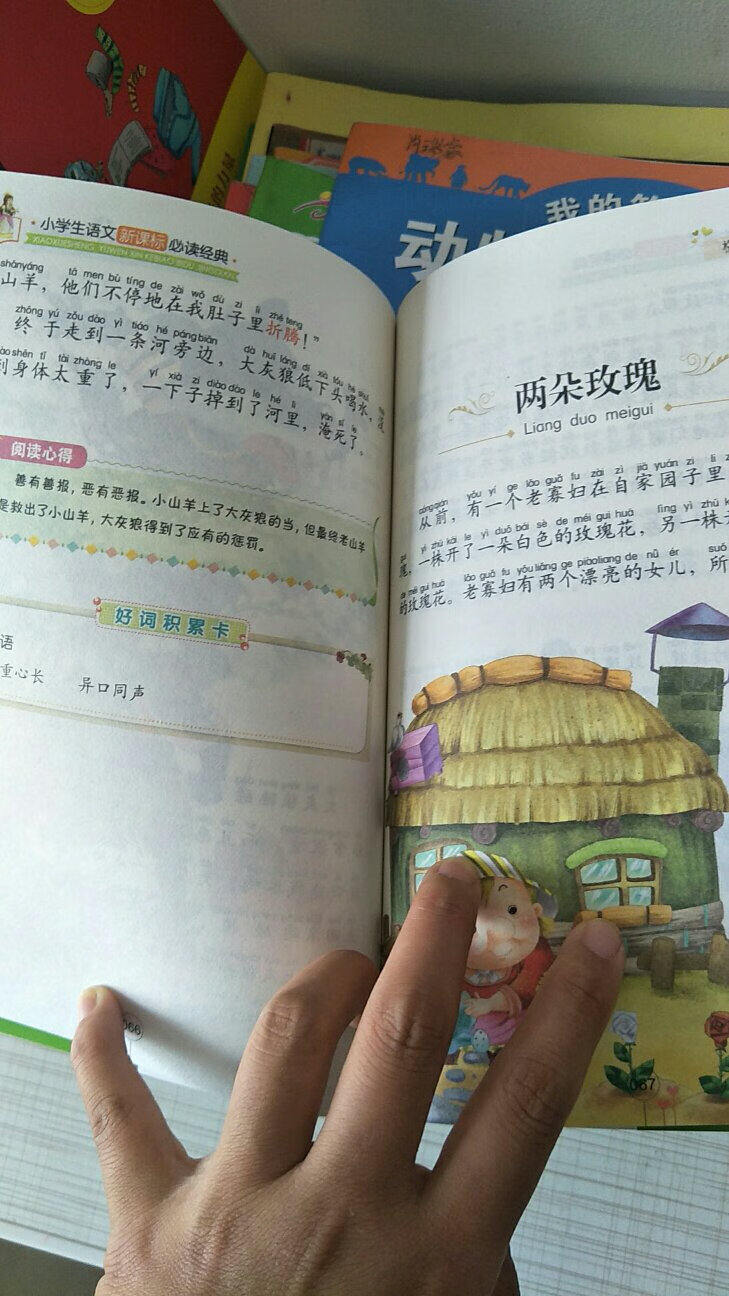 小学生语文新课标必读经典
XIAOXUESHENG YUWEN XIN KEBIAO BIDU JINGDIAN
shānyáng tā men bù tíng de zài wǒ dù zi li zhē teng
山羊，他们不停地在我肚子里折腾！”
zhōng yú zǒu dào yì tiáo hé páng biān dà huī láng dī xià tóu hē shuǐ
终于走到一条河旁边，大灰狼低下头喝水，
shēn tǐ tài zhòng le yí xià zi diào dào le hé li yān sǐ le
到身体太重了，一下子掉到了河里，淹死了。
阅读心得
善有善报，恶有恶报。小山羊上了大灰狼的当，但最终老山羊
是救出了小山羊，大灰狼得到了应有的惩罚。
好词积累卡
语
重心长 异口同声
066
两朵玫瑰
Liang duo meigui
cóngqián yǒu yí ge lǎo guǎ fu zài zì jiā yuán zi li
从前，有一个老寡妇在自家园子里
yì zhū kāi le yì duǒ bái sè de méi gui huā lìng yì zhū
瑰，一株开了一朵白色的玫瑰花，另一株
de méi gui huā lǎo guǎ fu yǒu liǎng ge piàoliang de nǚ ér suǒ
的玫瑰花。老寡妇有两个漂亮的女儿，所
067
我的
动